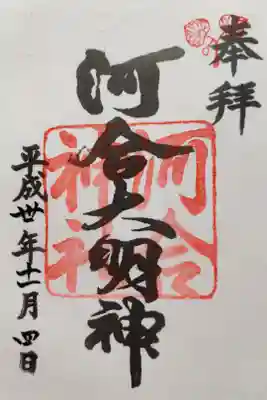 奉拝
河合大明神
河合
神社
平成卅年十一月四日